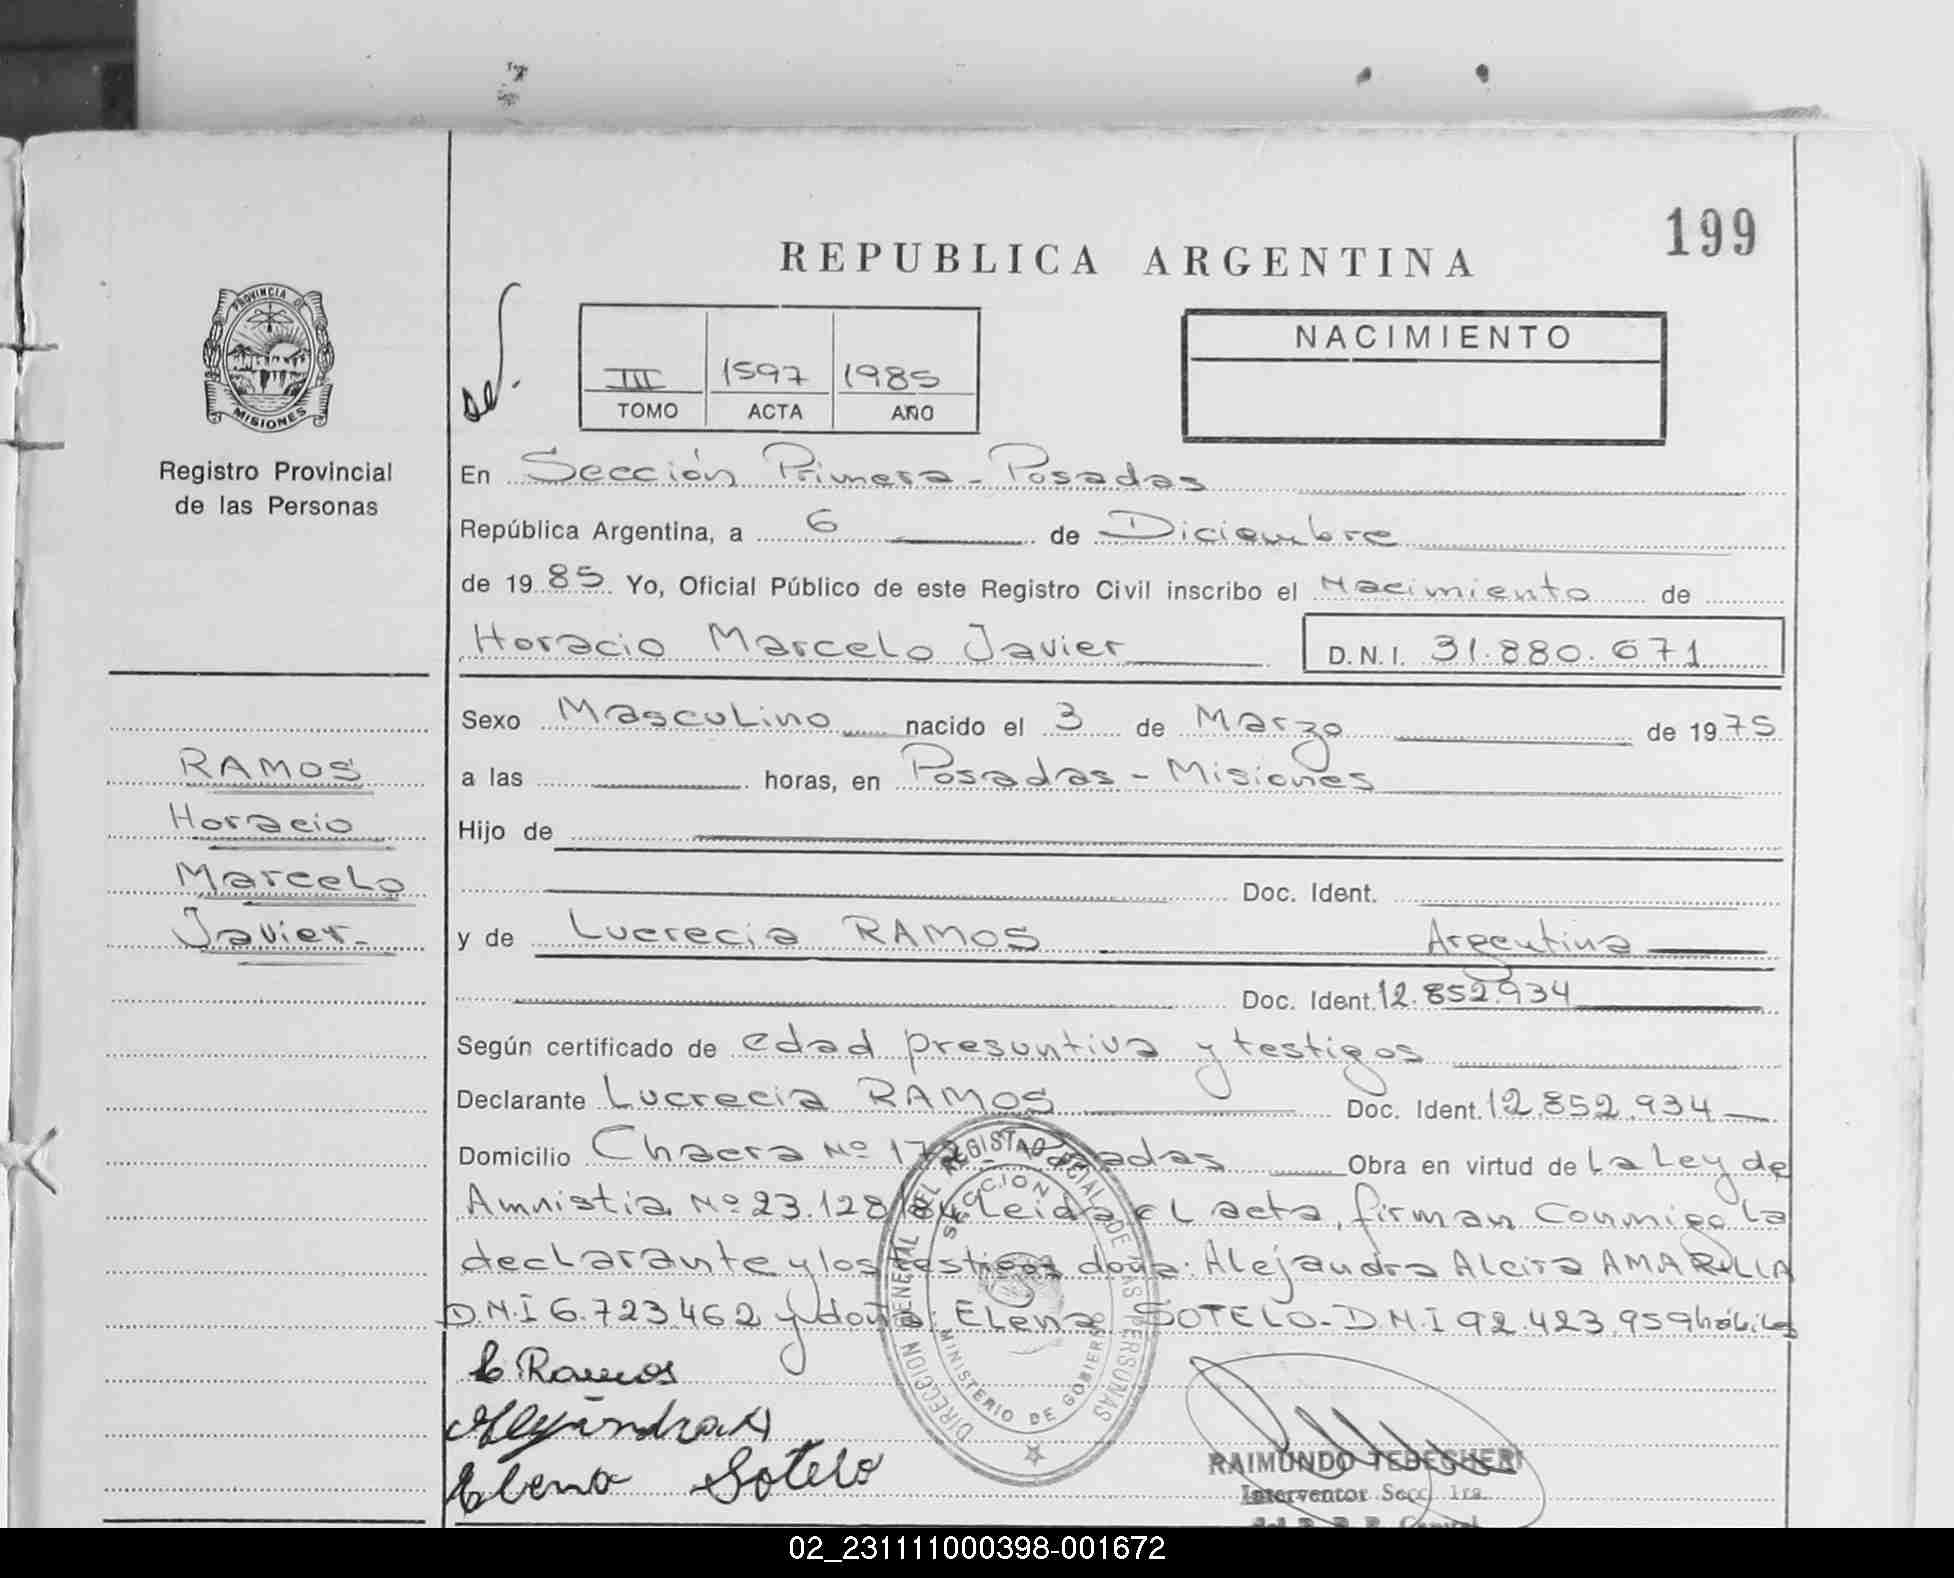 199
REPUBLICA ARGENTINA
PROVINCIA DE
MISIONES
Registro Provincial
de las Personas
III 1597 1985
TOMO ACTA AÑO
NACIMIENTO
En Sección Primera - Posadas
República Argentina, a 6 de Diciembre
de 1985 Yo, Oficial Público de este Registro Civil inscribo el Nacimiento de
Horacio Marcelo Javier D.N.I. 31.880.671
Sexo Masculino nacido el 3 de Marzo de 1975
RAMOS
Horacio
Marcelo
Javier.-
a las horas, en Posadas - Misiones
Hijo de
Doc. Ident.
y de Lucrecia RAMOS Argentina
Doc. Ident. 12.852.934
Según certificado de edad presuntiva y testigos
Declarante Lucrecia RAMOS Doc. Ident. 12.852.934
Domicilio Chacra Nº 172 - Posadas Obra en virtud de La Ley de
Amnistia Nº 23.128/84 Leida el acta, firman conmigo la
declarante y los testigos doña: Alejandra Alcira AMARILLA
D.N.I 6.723.462 y doña: Elena SOTELO - D.N.I 92.423.959 hábiles
DIRECCION GENERAL DEL REGISTRO PROVINCIAL DE LAS PERSONAS
SECCION
MINISTERIO DE GOBIERNO
L. Ramos
Alejandra A
Elena Sotelo
RAIMUNDO TEBESHERI
Interventor Secc. 1ra.
02_231111000398-001672